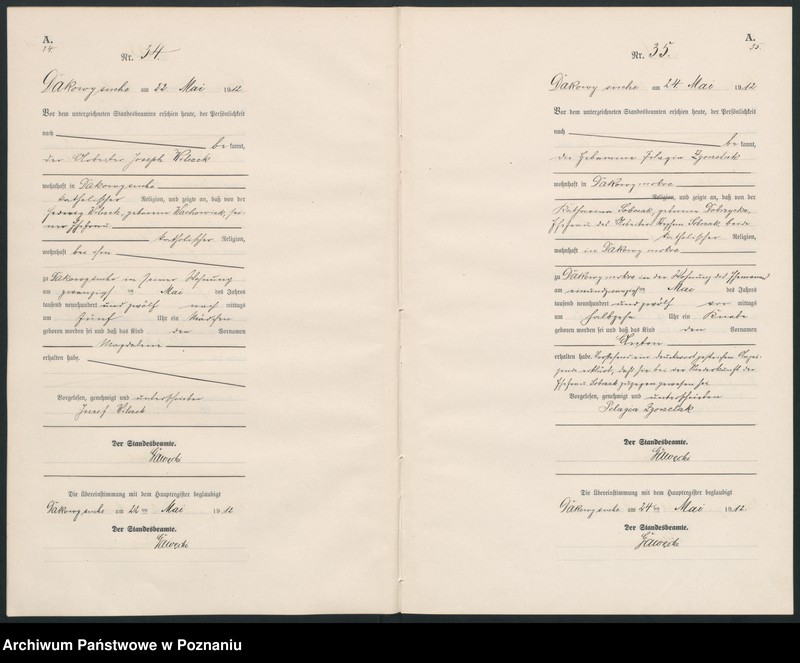 A.
34.
Nr. 34.
Dakowy suche am 22 Mai 1912
Vor dem unterzeichneten Standesbeamten erschien heute, der Persönlichkeit
nach be kannt,
der Arbeiter Joseph Wilczek
wohnhaft in Dakowy suche
katholischer Religion, und zeigte an, daß von der
Hedwig Wilczek, geborenen seiner Ehefrau
katholischer Religion,
wohnhaft bei ihm
zu Dakowy suche in seiner Wohnung
am zwanzigsten Mai des Jahres
tausend neunhundert und zwölf nach mittags
um fünf Uhr ein Mädchen
geboren worden sei und daß das Kind den Vornamen
Magdalena
erhalten habe.
Vorgelesen, genehmigt und unterschrieben
Józef Wilczek
Der Standesbeamte.
Die Übereinstimmung mit dem Hauptregister beglaubigt
Dakowy suche am 22 ten Mai 1912
Der Standesbeamte.
A.
35.
Nr. 35.
Dakowy suche am 24 Mai 1912
Vor dem unterzeichneten Standesbeamten erschien heute, der Persönlichkeit
nach be kannt,
die Hebamme Pelagia
wohnhaft in Dakowy mokre
Religion, und zeigte an, daß von der
Katharina geborenen
Ehefrau des Arbeiters beide
katholischer Religion,
wohnhaft in Dakowy mokre
zu Dakowy mokre in der Wohnung des Ehemannes
am einundzwanzigsten Mai des Jahres
tausend neunhundert und zwölf vor mittags
um halbzehn Uhr ein Knabe
geboren worden sei und daß das Kind den Vornamen
Anton
erhalten habe. Vorstehend ein Druckwort gestrichen. Anzei-
gende erklärt, daß sie bei der Niederkunft der
Ehefrau zugegen gewesen sei
Vorgelesen, genehmigt und unterschrieben
Pelagia
Der Standesbeamte.
Die Übereinstimmung mit dem Hauptregister beglaubigt
Dakowy suche am 24 ten Mai 1912
Der Standesbeamte.
Archiwum Państwowe w Poznaniu